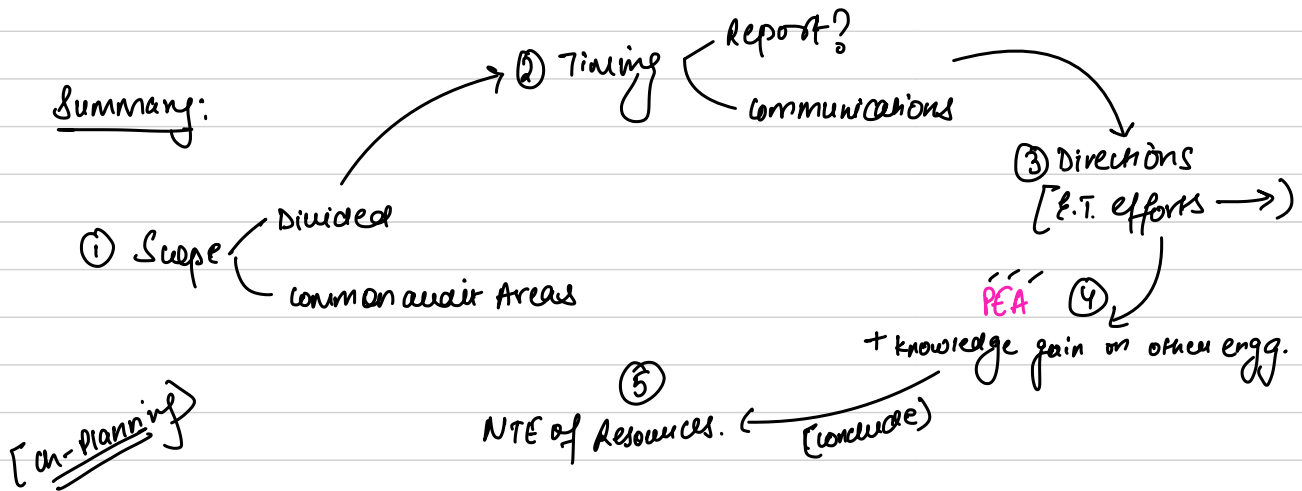 Summary:
① Scope
Divided
Common audit Areas
② Timing
Report?
Communications
③ Directions
[E.T. efforts →)
PEA ④
+ Knowledge gain on other engg.
[conclude)
⑤
NTE of Resources.
[Ch-Planning]